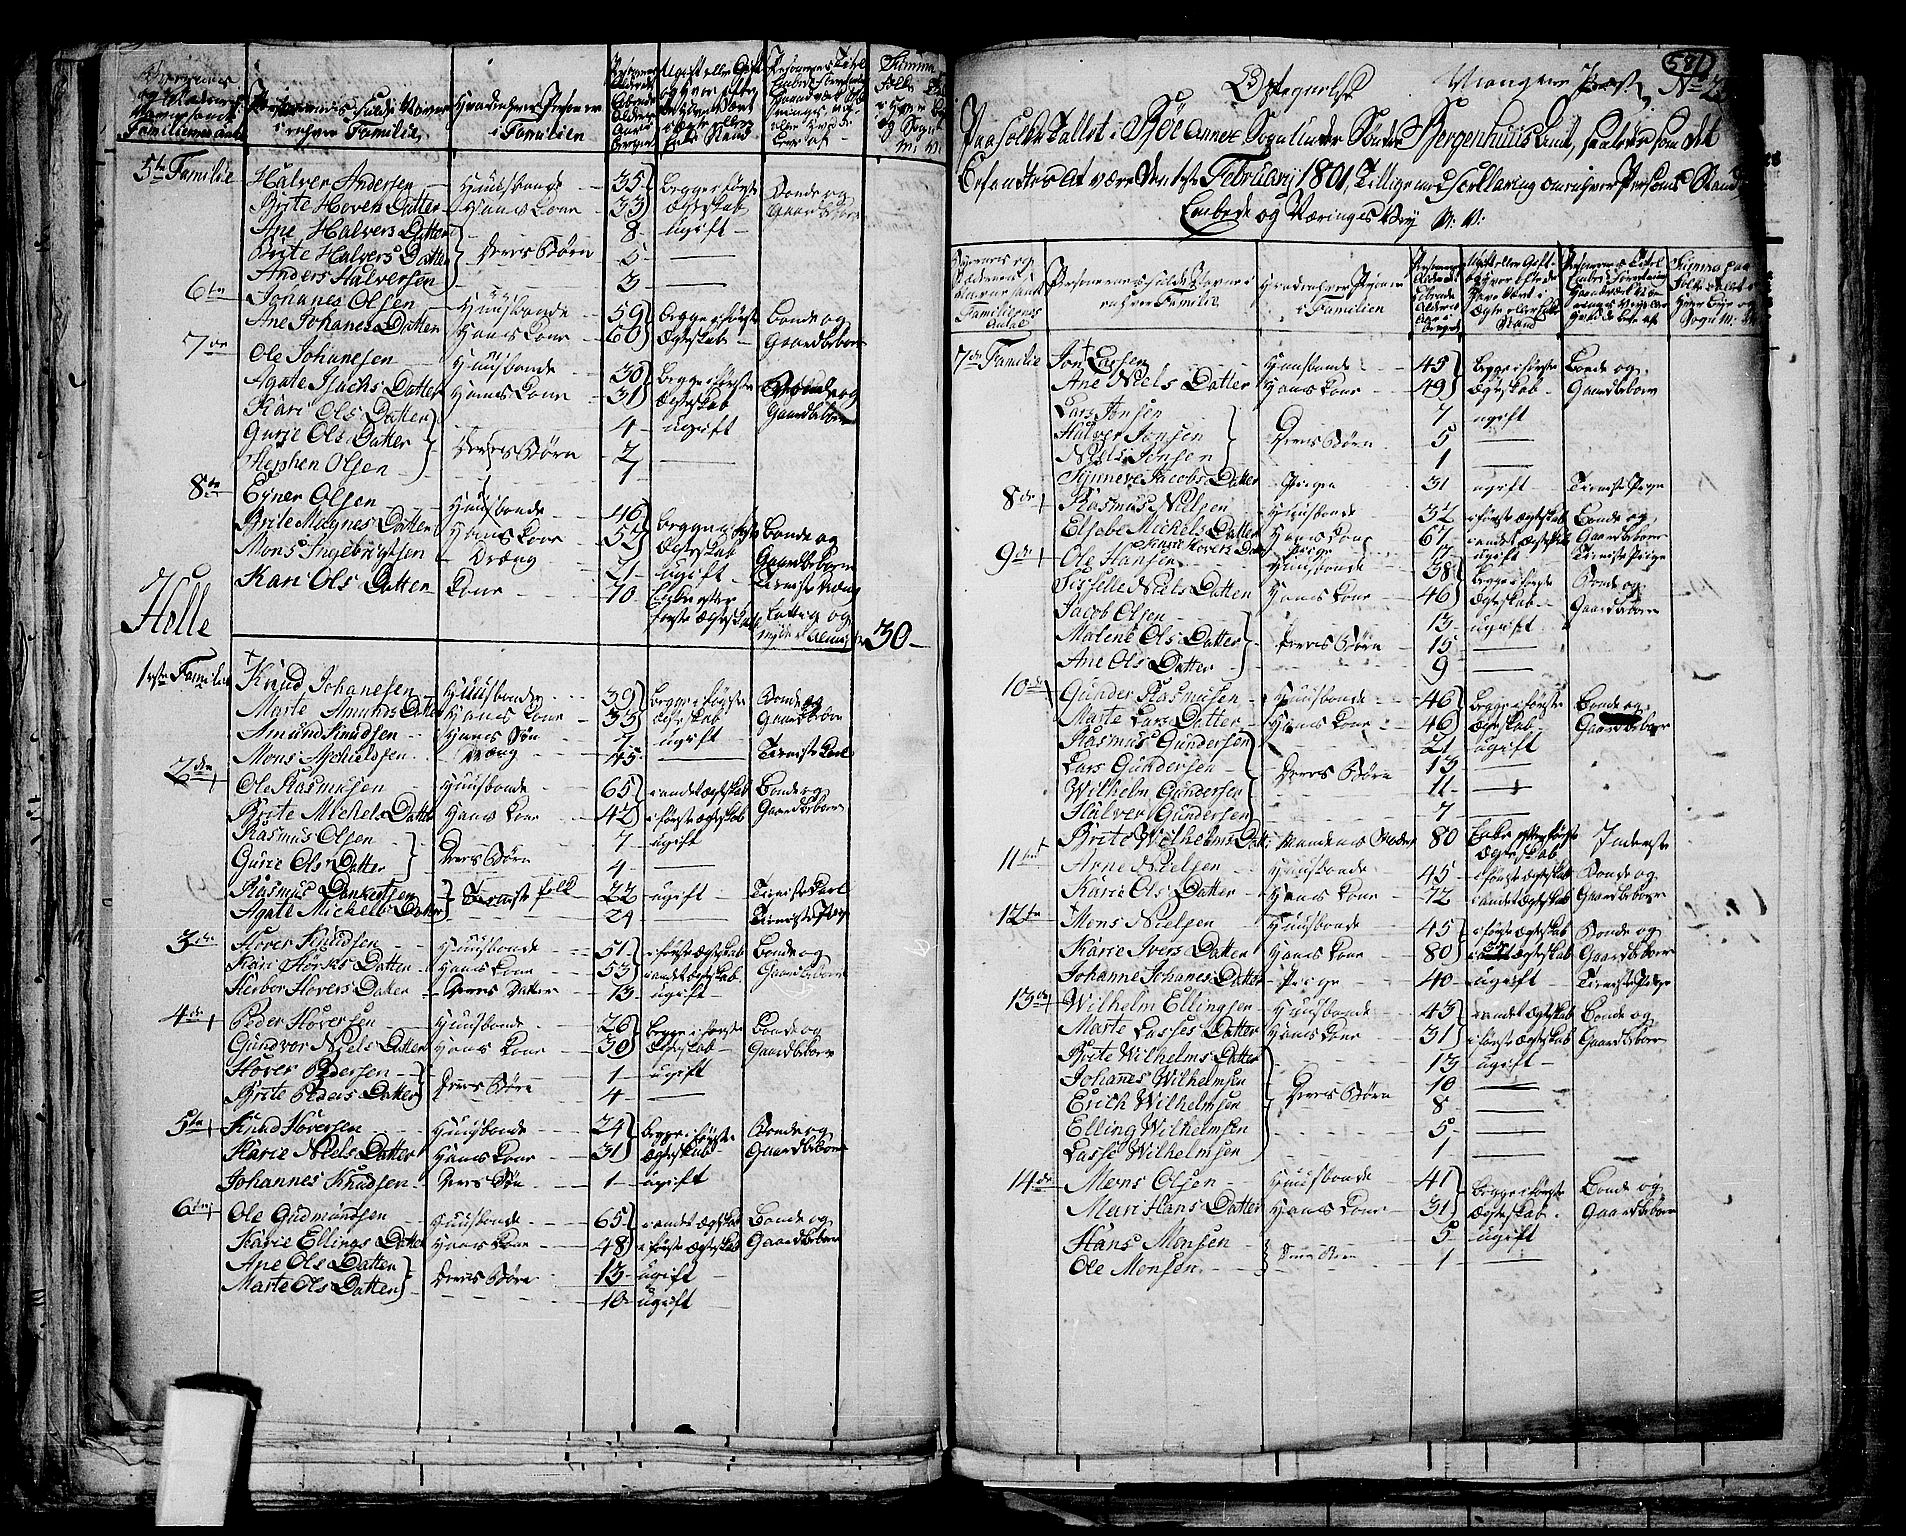 Personernes fulde Navne i enhver Familie
Hvad enhver Person er i Familien
5te Familie Halver Andersen Huusbonde 35 begge i første Bonde og
Brite Hover Datter Hans Kone 33 Ægteskab Gaardbeboer
Ane Halvers Datter 8 ugift
Brite Halvers Datter Deres Børn 5
Anders Halversen 3
6te Johanes Olsen Huusbonde 59 begge i første Bonde og
Ane Johanes Datter Hans Kone 60 Ægteskab Gaardbeboer
7de Ole Johanesen Huusbonde 30 begge i første Bonde og
Agate Isachs Datter Hans Kone 31 Ægteskab Gaardbeboer
Kari Ols Datter 4 ugift
Gurie Ols Datter Deres Børn 2
Stephen Olsen 1
8de Eyner Olsen Huusbonde 46 begge i første Bonde og
Brite Magnes Datter Hans Kone 52 Ægteskab Gaardbeboer
Mons Ingebrigtsen Dræng 21 ugift Tieniste Dræng
Kari Ols Datter Kone 70 Enke efter
første Ægteskab
Helle 30
1ste Familie Knud Johanesen Huusbonde 39 begge i første Bonde og
Marte Amunds Datter Hans Kone 33 Ægteskab Gaardbeboer
Amund Knudsen Hans Søn 7 ugift
Mons Michielsen Dræng 45 Tieniste Karl
2den Ole Rasmusen Huusbonde 65 i andet Ægteskab Bonde og
Brite Michels Datter Hans Kone 42 i første Ægteskab Gaardbeboer
Rasmus Olsen 7 ugift
Gurie Ols Datter Deres Børn 4
Rasmus Dankertsen Tieniste folk 22 ugift Tieniste Karl
Agate Michels Datter 24 Tieniste Pige
3die Hover Knudsen Huusbonde 51 i første Ægteskab Bonde og
Kari Størks Datter Hans Kone 53 i andet Ægteskab Gaardbeboer
Herbor Hovers Datter Deres Datter 13 ugift
4de Peder Hoversen Huusbonde 26 begge i første Bonde og
Gundvor Niels Datter Hans Kone 30 Ægteskab Gaardbeboer
Hover Pedersen 1 ugift
Brite Peders Datter Deres Børn 4
5te Knud Hoversen Huusbonde 24 begge i første Bonde og
Karie Niels Datter Hans Kone 31 Ægteskab Gaardbeboer
Johannes Knudsen Deres Søn 1 ugift
6te Ole Gudmundsen Huusbonde 65 i andet Ægteskab Bonde og
Karie Ellings Datter Hans Kone 48 i første Ægteskab Gaardbeboer
Ane Ols Datter 13 ugift
Marte Ols Datter Deres Børn 10 ugift
571
Mangers Præst
Paa Folke Tallet i Sæe Annex Sogn under Søndre Bergenhuus Amt, saaledes som det
Befandtes at være den 1ste February 1801, Tillige med Forklaring om enhver Persons Stand,
Embede og Næringsvey M: V:
Personernes fulde Navne i enhver Familie
Hvad enhver Person er i Familien
7de Familie Jon Larsen Huusbonde 45 begge i første Bonde og
Ane Niels Datter Hans Kone 49 Ægteskab Gaardbeboer
Lars Jonsen 7 ugift
Halver Jonsen Deres Børn 5
Niels Jonsen 1
Synneve Jacobs Datter Pige 31 ugift Tieniste Pige
8de Rasmus Nielsen Huusbonde 32 i første Ægteskab Bonde og
Elsebe Michels Datter Hans Kone 67 i andet Ægteskab Gaardbeboer
Pige 17 ugift Tieniste Pige
9de Ole Hansen Huusbonde 38 begge i første Bonde og
Sisselle Niels Datter Hans Kone 46 Ægteskab Gaardbeboer
Jacob Olsen 13 ugift
Malene Ols Datter Deres Børn 15
Ane Ols Datter 9
10de Gunder Rasmusen Huusbonde 46 begge i første Bonde og
Marte Lars Datter Hans Kone 46 Ægteskab Gaardbeboer
Rasmus Gundersen 21 ugift
Lars Gundersen Deres Børn 13
Wilhelm Gundersen 11
Halver Gundersen 7
Brite Wilhelms Datt: Mandens Moder 80 Enke efter første Inderste
Ægteskab
11te Arne Nielsen Huusbonde 45 i første Ægteskab Bonde og
Karie Ols Datter Hans Kone 72 i andet Ægteskab Gaardbeboer
12te Mons Nielsen Huusbonde 45 i første Ægteskab Bonde og
Karie Ivers Datter Hans Kone 80 i andet Ægteskab Gaardbeboer
Johanne Johanes Datter Pige 40 ugift Tieniste Pige
13de Wilhelm Ellingsen Huusbonde 43 i andet Ægteskab Bonde og
Marte Lasses Datter Hans Kone 31 i første Ægteskab Gaardbeboer
Brite Wilhelms Datter 13 ugift
Johanes Wilhelmsen 10
Erich Wilhelmsen Deres Børn 8
Elling Wilhelmsen 5
Lasse Wilhelmsen 1
14de Mons Olsen Huusbonde 41 begge i første Bonde og
Mari Hans Datter Hans Kone 31 Ægteskab Gaardbeboer
Hans Monsen 5 ugift
Ole Monsen Deres Børn 1